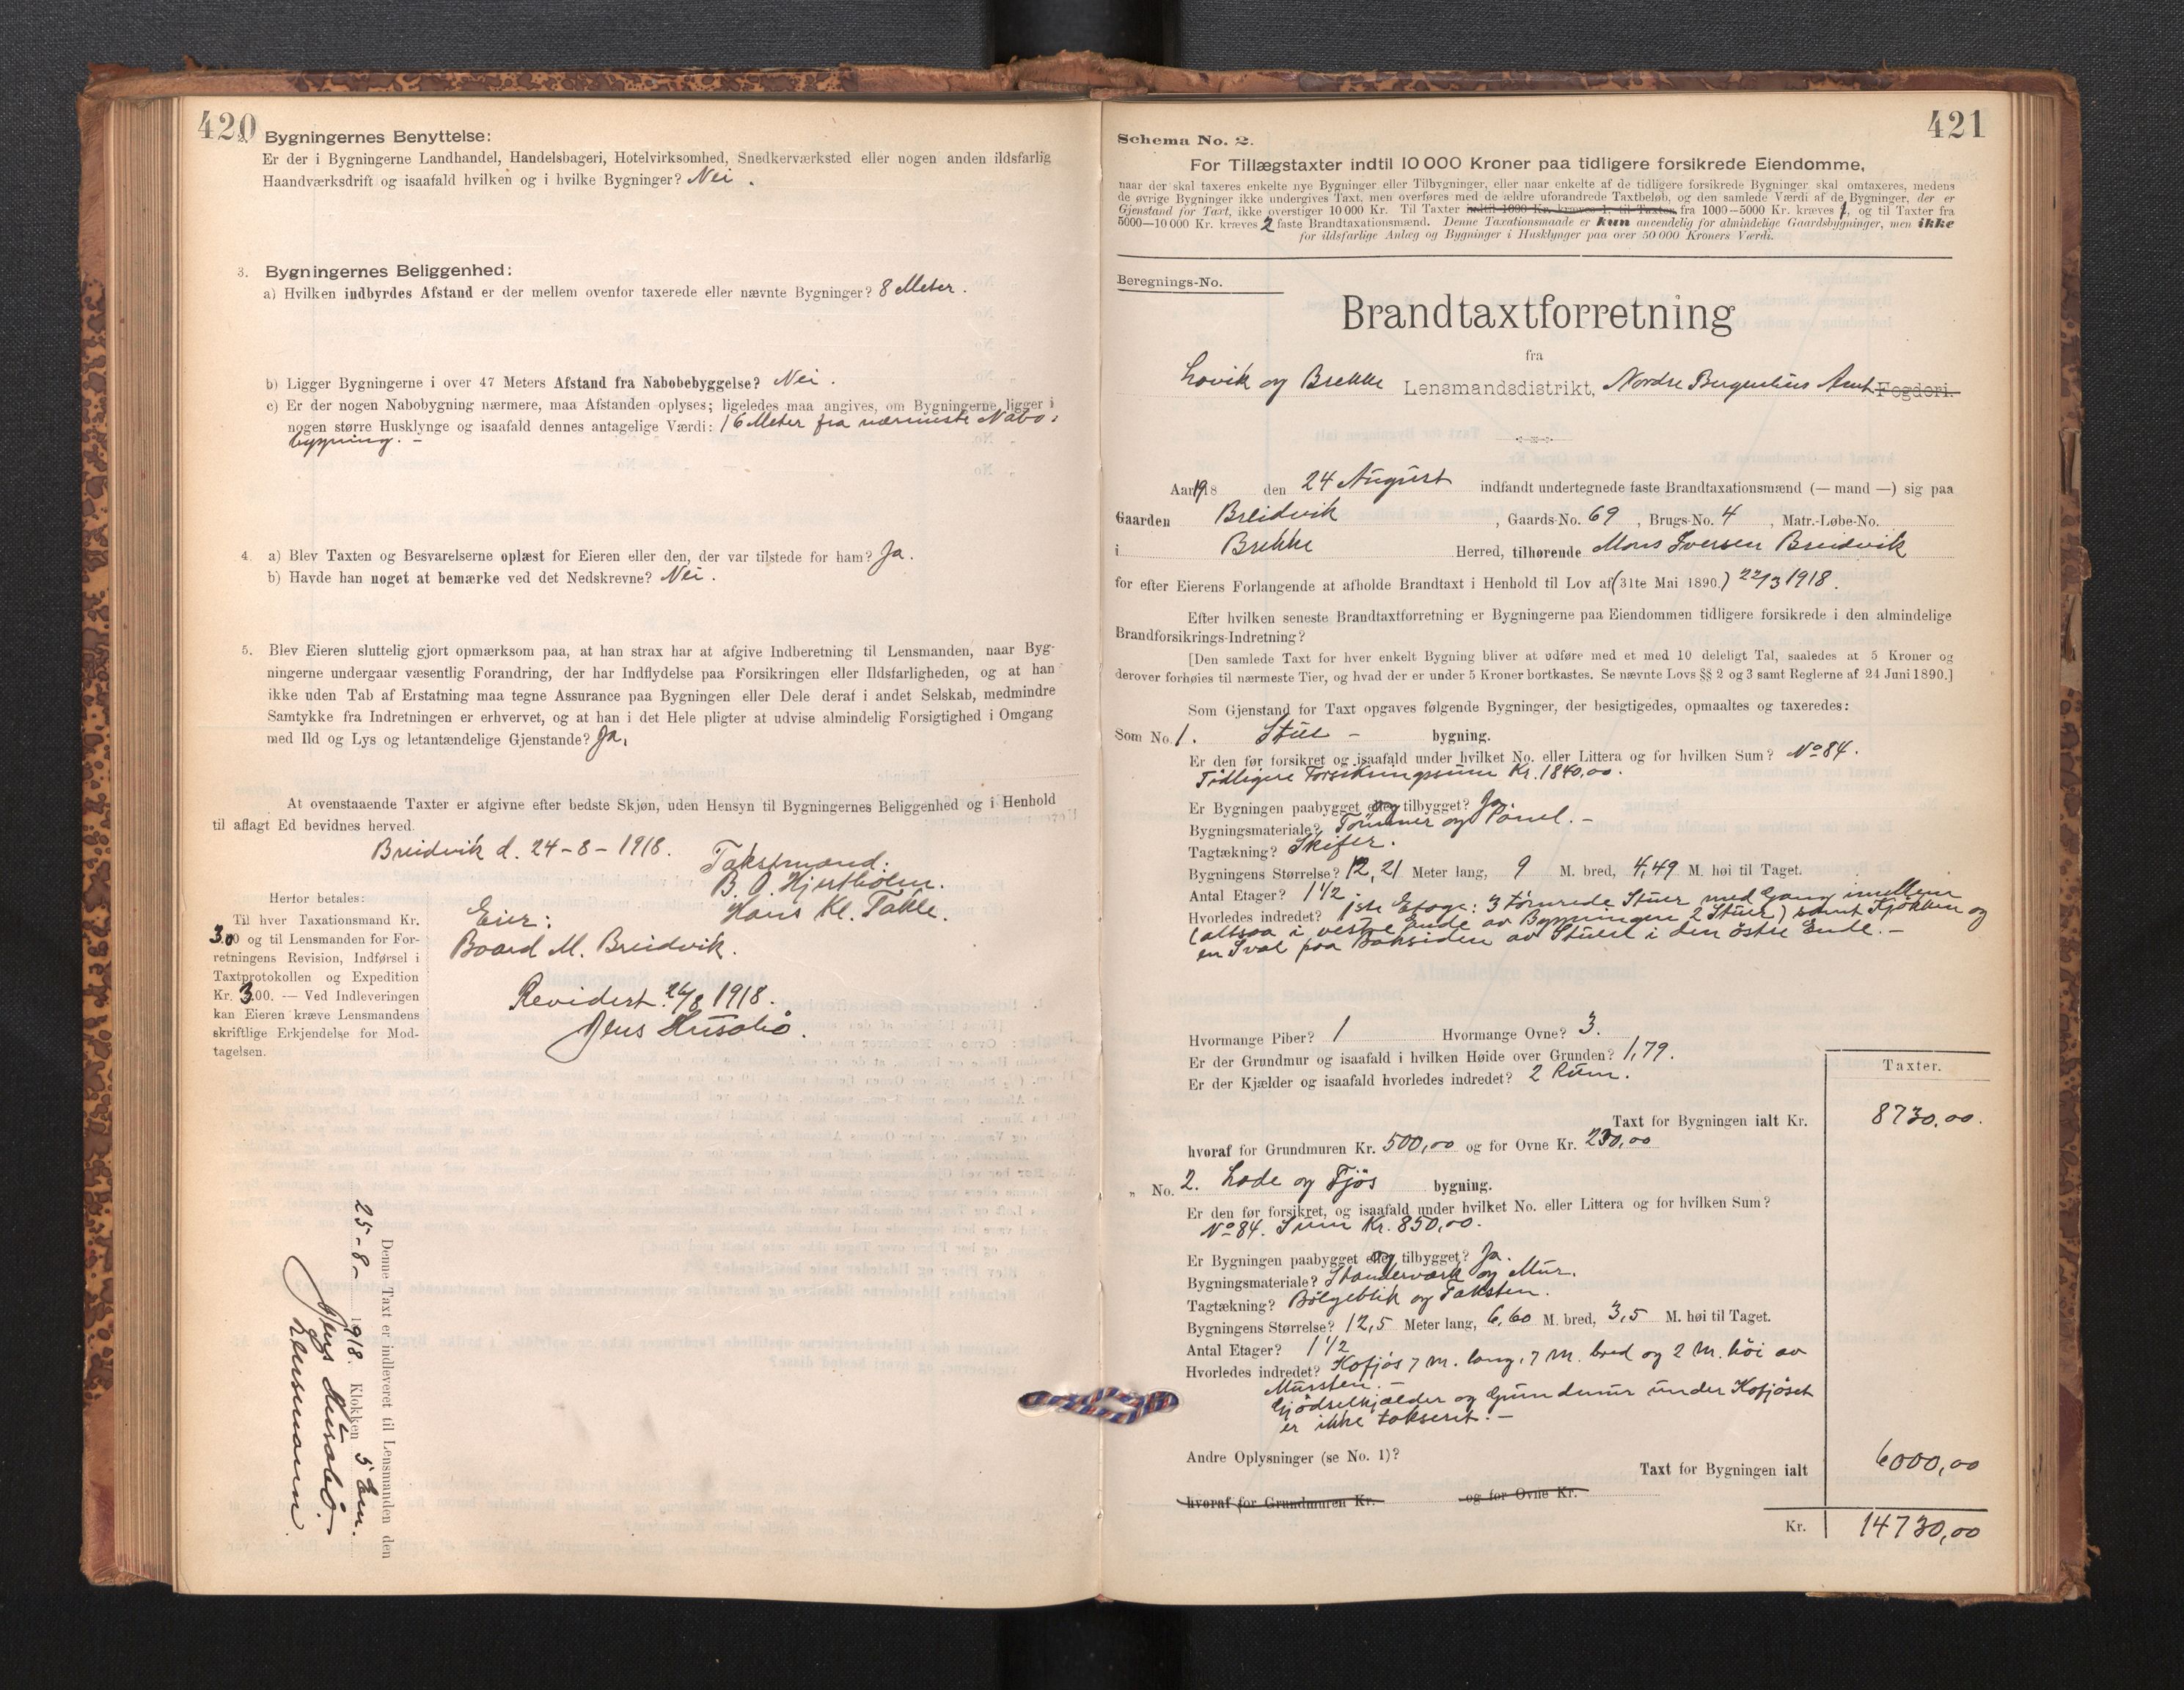 420
2. Bygningernes Benyttelse:
Er der i Bygningerne Landhandel, Handelsbageri, Hotelvirksomhed, Snedkerværksted eller nogen anden ildsfarlig
Haandværksdrift og isaafald hvilken og i hvilke Bygninger? Nei.
3. Bygningernes Beliggenhed:
a) Hvilken indbyrdes Afstand er der mellem ovenfor taxerede eller nævnte Bygninger? 8 Meter.
b) Ligger Bygningerne i over 47 Meters Afstand fra Nabobebyggelse? Nei.
c) Er der nogen Nabobygning nærmere, maa Afstanden oplyses; ligeledes maa angives, om Bygningerne ligger i
nogen større Husklynge og isaafald dennes antagelige Værdi: 16 Meter fra nærmeste Nabo-
bygning. -
4. a) Blev Taxten og Besvarelserne oplæst for Eieren eller den, der var tilstede for ham? Ja.
b) Havde han noget at bemærke ved det Nedskrevne? Nei.
5. Blev Eieren sluttelig gjort opmærksom paa, at han strax har at afgive Indberetning til Lensmanden, naar Byg-
ningerne undergaar væsentlig Forandring, der har Indflydelse paa Forsikringen eller Ildsfarligheden, og at han
ikke uden Tab af Erstatning maa tegne Assurance paa Bygningen eller Dele deraf i andet Selskab, medmindre
Samtykke fra Indretningen er erhvervet, og at han i det Hele pligter at udvise almindelig Forsigtighed i Omgang
med Ild og Lys og letantændelige Gjenstande? Ja.
At ovenstaaende Taxter er afgivne efter bedste Skjøn, uden Hensyn til Bygningernes Beliggenhed og i Henhold
til aflagt Ed bevidnes herved.
Breidvik d. 24-8-1918.
Takstmænd:
B. O. Hjertholm.
Hans Kl. Takle.
Eier:
Baard M. Breidvik.
Revidert 26/8 1918.
Jens Husabø.
Herfor betales:
Til hver Taxationsmand Kr.
3.00 og til Lensmanden for For-
retningens Revision, Indførsel i
Taxtprotokollen og Expedition
Kr. 3.00. — Ved Indleveringen
kan Eieren kræve Lensmandens
skriftlige Erkjendelse for Mod-
tagelsen.
Denne Taxt er indleveret til Lensmanden den
25-8- 1918. Klokken 5 Em.
Jens Husabø.
Lensmann.
421
Schema No. 2.
For Tillægstaxter indtil 10 000 Kroner paa tidligere forsikrede Eiendomme,
naar der skal taxeres enkelte nye Bygninger eller Tilbygninger, eller naar enkelte af de tidligere forsikrede Bygninger skal omtaxeres, medens
de øvrige Bygninger ikke undergives Taxt, men overføres med de ældre uforandrede Taxtbeløb, og den samlede Værdi af de Bygninger, der er
Gjenstand for Taxt, ikke overstiger 10 000 Kr. Til Taxter indtil 1000 Kr. kræves 1, til Taxter fra 1000—5000 Kr. kræves 1, og til Taxter fra
5000—10 000 Kr. kræves 2 faste Brandtaxationsmænd. Denne Taxationsmaade er kun anvendelig for almindelige Gaardsbygninger, men ikke
for ildsfarlige Anlæg og Bygninger i Husklynger paa over 50 000 Kroners Værdi.
Beregnings-No.
Brandtaxtforretning
fra
Lavik og Brekke Lensmandsdistrikt, Nordre Bergenhus Amt Fogderi.
Aar 1918 den 24 August indfandt undertegnede faste Brandtaxationsmænd (— mand —) sig paa
Gaarden Breidvik, Gaards-No. 69, Brugs-No. 4, Matr.-Løbe-No.
i Brekke Herred, tilhørende Mons Iversen Breidvik
for efter Eierens Forlangende at afholde Brandtaxt i Henhold til Lov af (31te Mai 1890.) 22/3 1918.
Efter hvilken seneste Brandtaxtforretning er Bygningerne paa Eiendommen tidligere forsikrede i den almindelige
Brandforsikrings-Indretning?
[Den samlede Taxt for hver enkelt Bygning bliver at udføre med et med 10 deleligt Tal, saaledes at 5 Kroner og
derover forhøies til nærmeste Tier, og hvad der er under 5 Kroner bortkastes. Se nævnte Lovs §§ 2 og 3 samt Reglerne af 24 Juni 1890.]
Som Gjenstand for Taxt opgaves følgende Bygninger, der besigtigedes, opmaaltes og taxeredes:
Som No. 1. Stue - bygning.
Er den før forsikret og isaafald under hvilket No. eller Littera og for hvilken Sum? No 84.
Tidligere Forsikringssum Kr. 1840,00.
Er Bygningen paabygget eller og tilbygget? Ja.
Bygningsmateriale? Tømmer og Panel. -
Tagtækning? Skifer.
Bygningens Størrelse? 12,21 Meter lang, 9 M. bred, 4,49 M. høi til Taget.
Antal Etager? 1 1/2
Hvorledes indredet? 1ste Etage: 3 tømrede Stuer med Gang imellem
(altsaa i vestre Ende av Bygningen 2 Stuer) samt Kjøkken og
en Sval paa Baksiden av Stuen i den østre Ende. -
Hvormange Piber? 1 Hvormange Ovne? 3.
Er der Grundmur og isaafald i hvilken Høide over Grunden? 1,79.
Er der Kjælder og isaafald hvorledes indredet? 2 Rum.
Taxter.
Taxt for Bygningen ialt Kr. 8730,00.
hvoraf for Grundmuren Kr. 500,00 og for Ovne Kr. 230,00
„ No. 2. Lade og Fjøs bygning.
Er den før forsikret, og isaafald under hvilket No. eller Littera og for hvilken Sum?
No 84. Sum Kr. 850,00.
Er Bygningen paabygget eller og tilbygget? Ja.
Bygningsmateriale? Standerværk og Mur.
Tagtækning? Bølgeblik og Taksten.
Bygningens Størrelse? 12,5 Meter lang, 6,60 M. bred, 3,5 M. høi til Taget.
Antal Etager? 1 1/2
Hvorledes indredet? Kofjøs 7 m. lang, 7 m. bred og 2 m. høi av
Mursten. -
Gjødselkjælder og Grundmur under Kofjøset
er ikke taksert. -
Andre Oplysninger (se No. 1)?
Taxt for Bygningen ialt 6000,00
hvoraf for Grundmuren Kr. og for Ovne Kr.
Kr. 14730,00